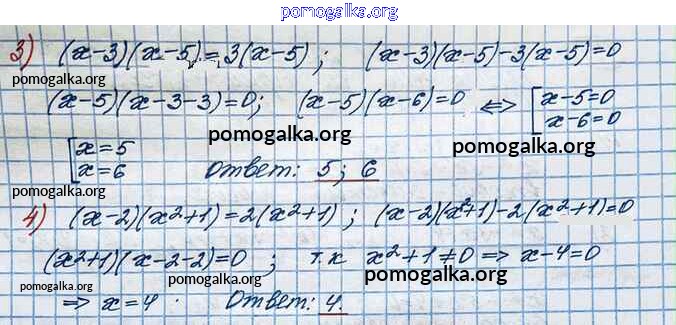 pomogalka.org
3) (x-3)(x-5)=3(x-5); (x-3)(x-5)-3(x-5)=0
pomogalka.org
(x-5)(x-3-3)=0; (x-5)(x-6)=0 ⟺ [x-5=0
x-6=0
pomogalka.org pomogalka.org
[x=5
x=6 Ответ: 5; 6
pomogalka.org pomogalka.org
4) (x-2)(x²+1)=2(x²+1); (x-2)(x²+1)-2(x²+1)=0
(x²+1)(x-2-2)=0; т.к x²+1≠0 ⟹ x-4=0
pomogalka.org pomogalka.org
⟹ x=4. Ответ: 4.
pomogalka.org pomogalka.org